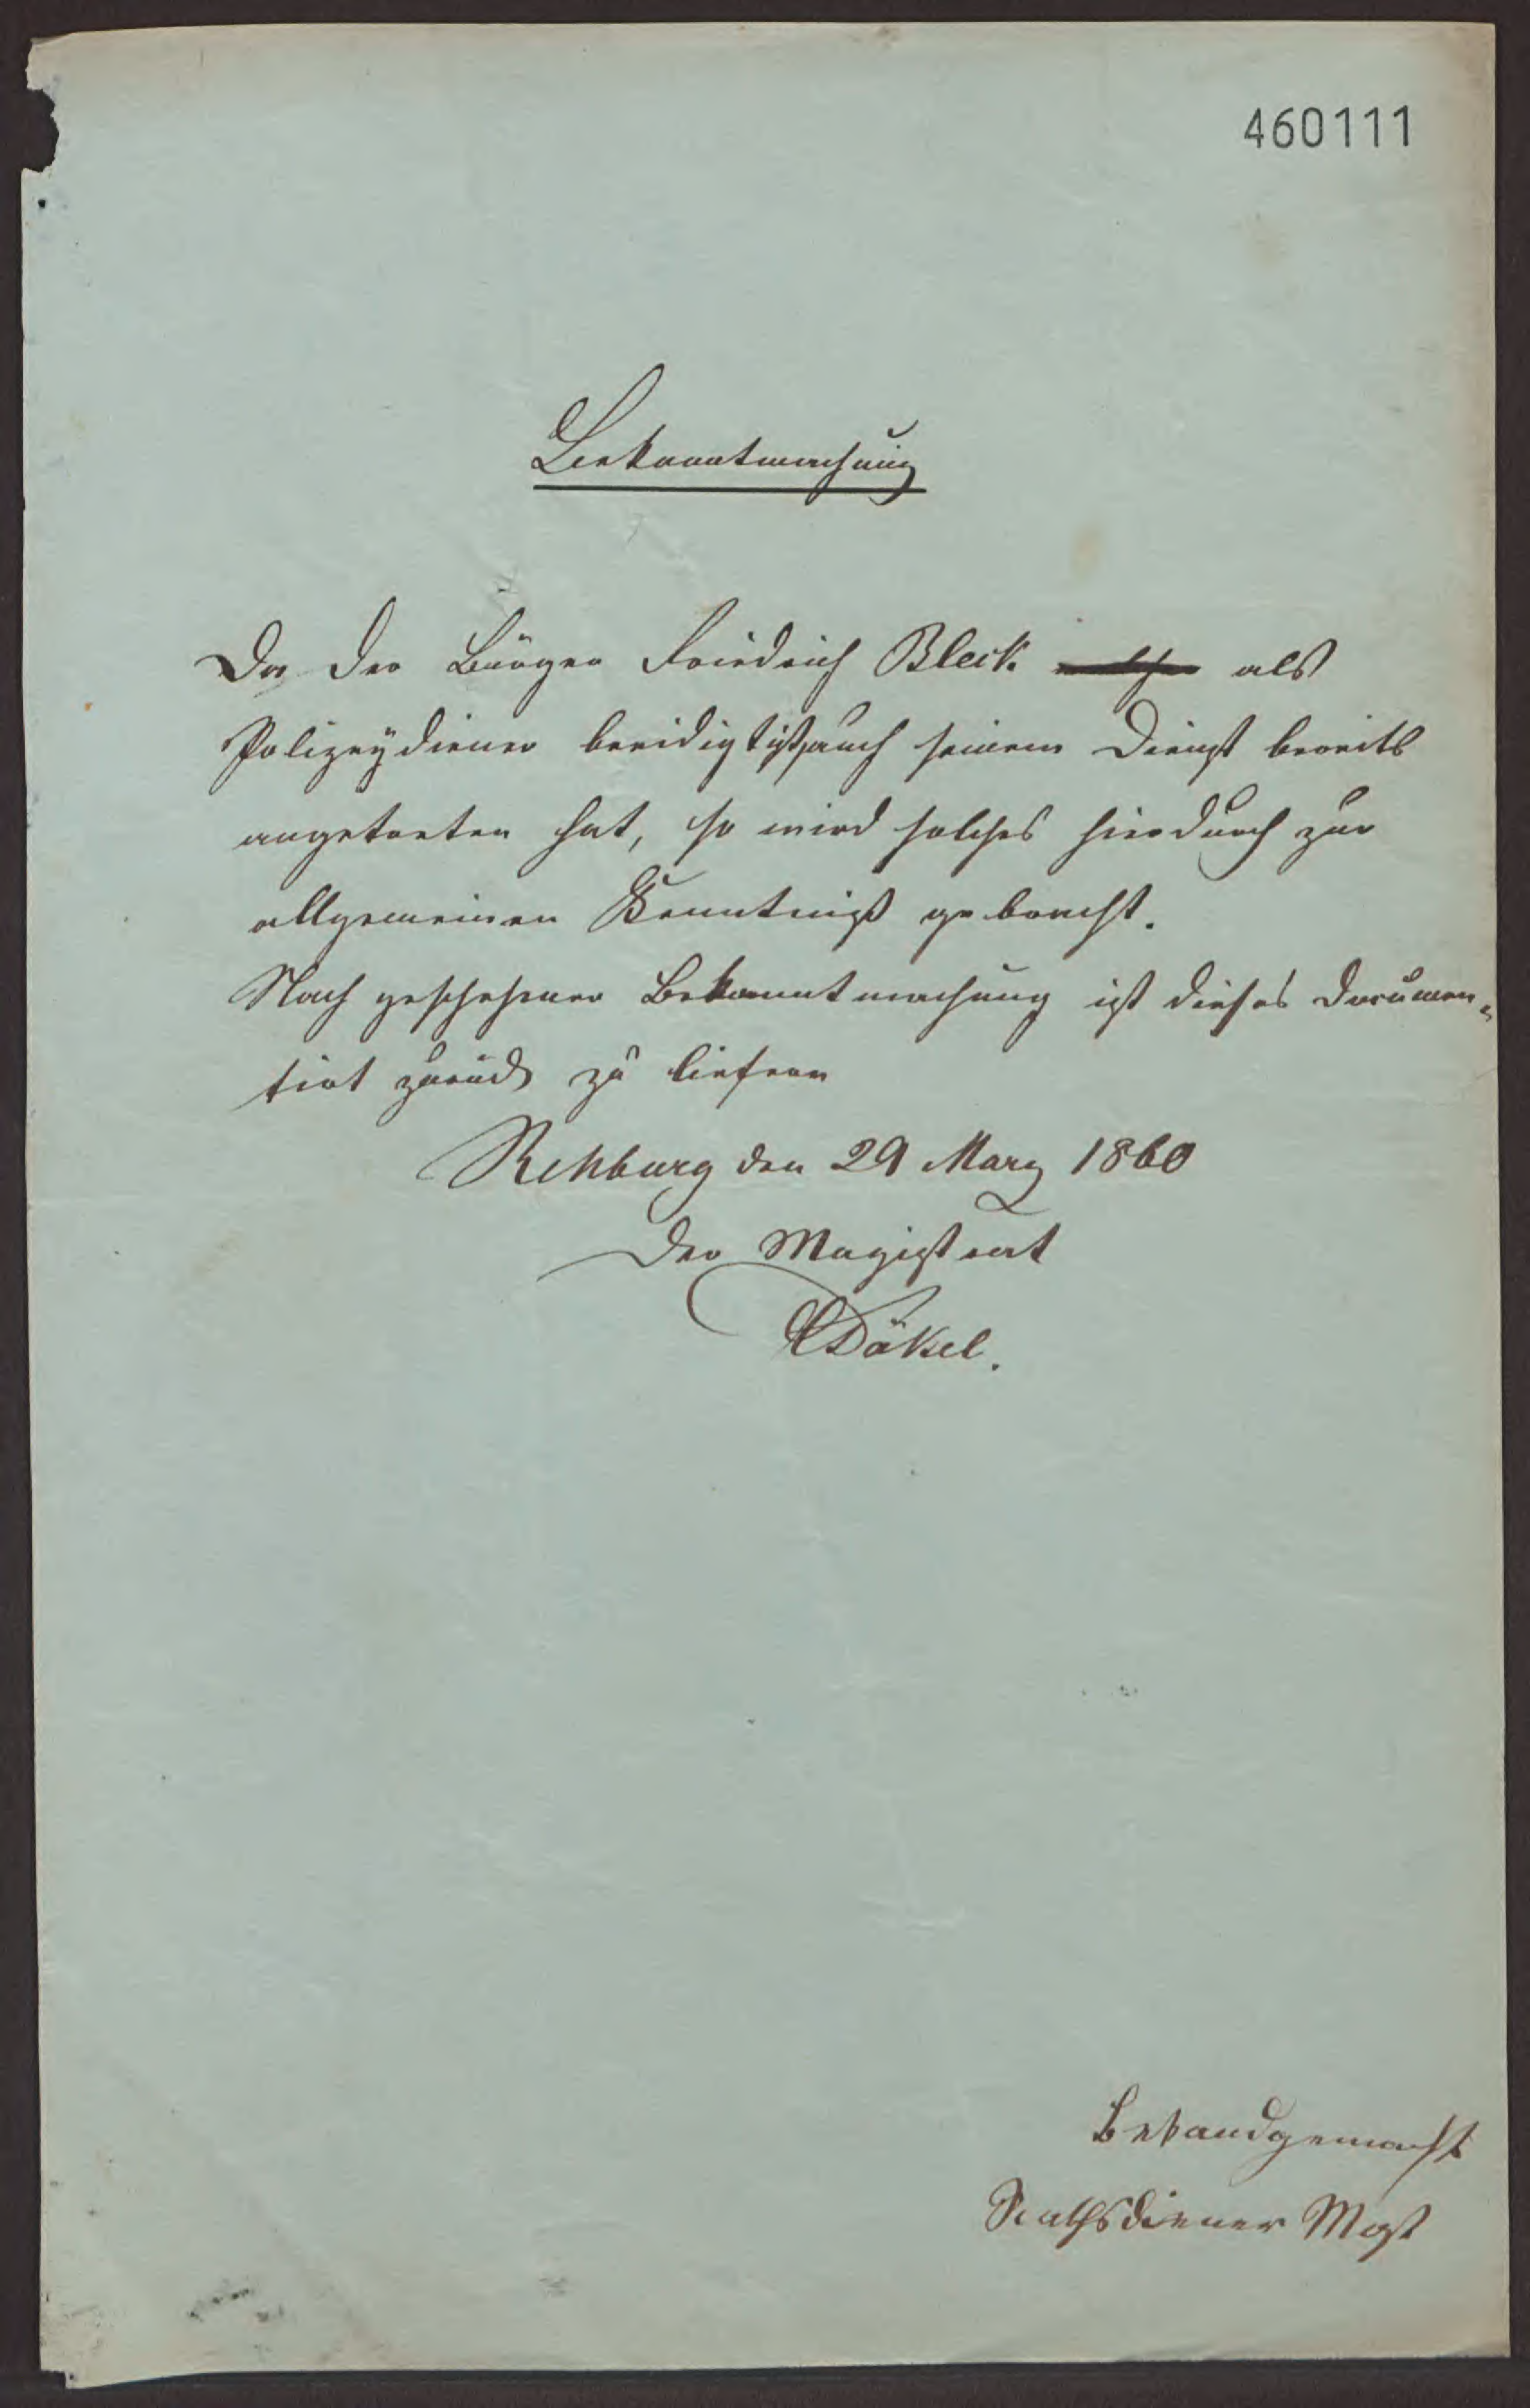 460111
Bekanntmachung
Da der Bürger Friedrich Bleck als
Polizeydiener beeidigt ist, auch seinem Dienst bereits
angetreten hat, so wird solches hierdurch zur
allgemeinen Kenntniß gebracht.
Nach geschehener Bekanntmachung ist dieses documen-
tirt zurück zu liefern
Rehburg den 29 Marz 1860
Der Magistrat
Däkel.
Bekandgemacht
Rathsdiener Most